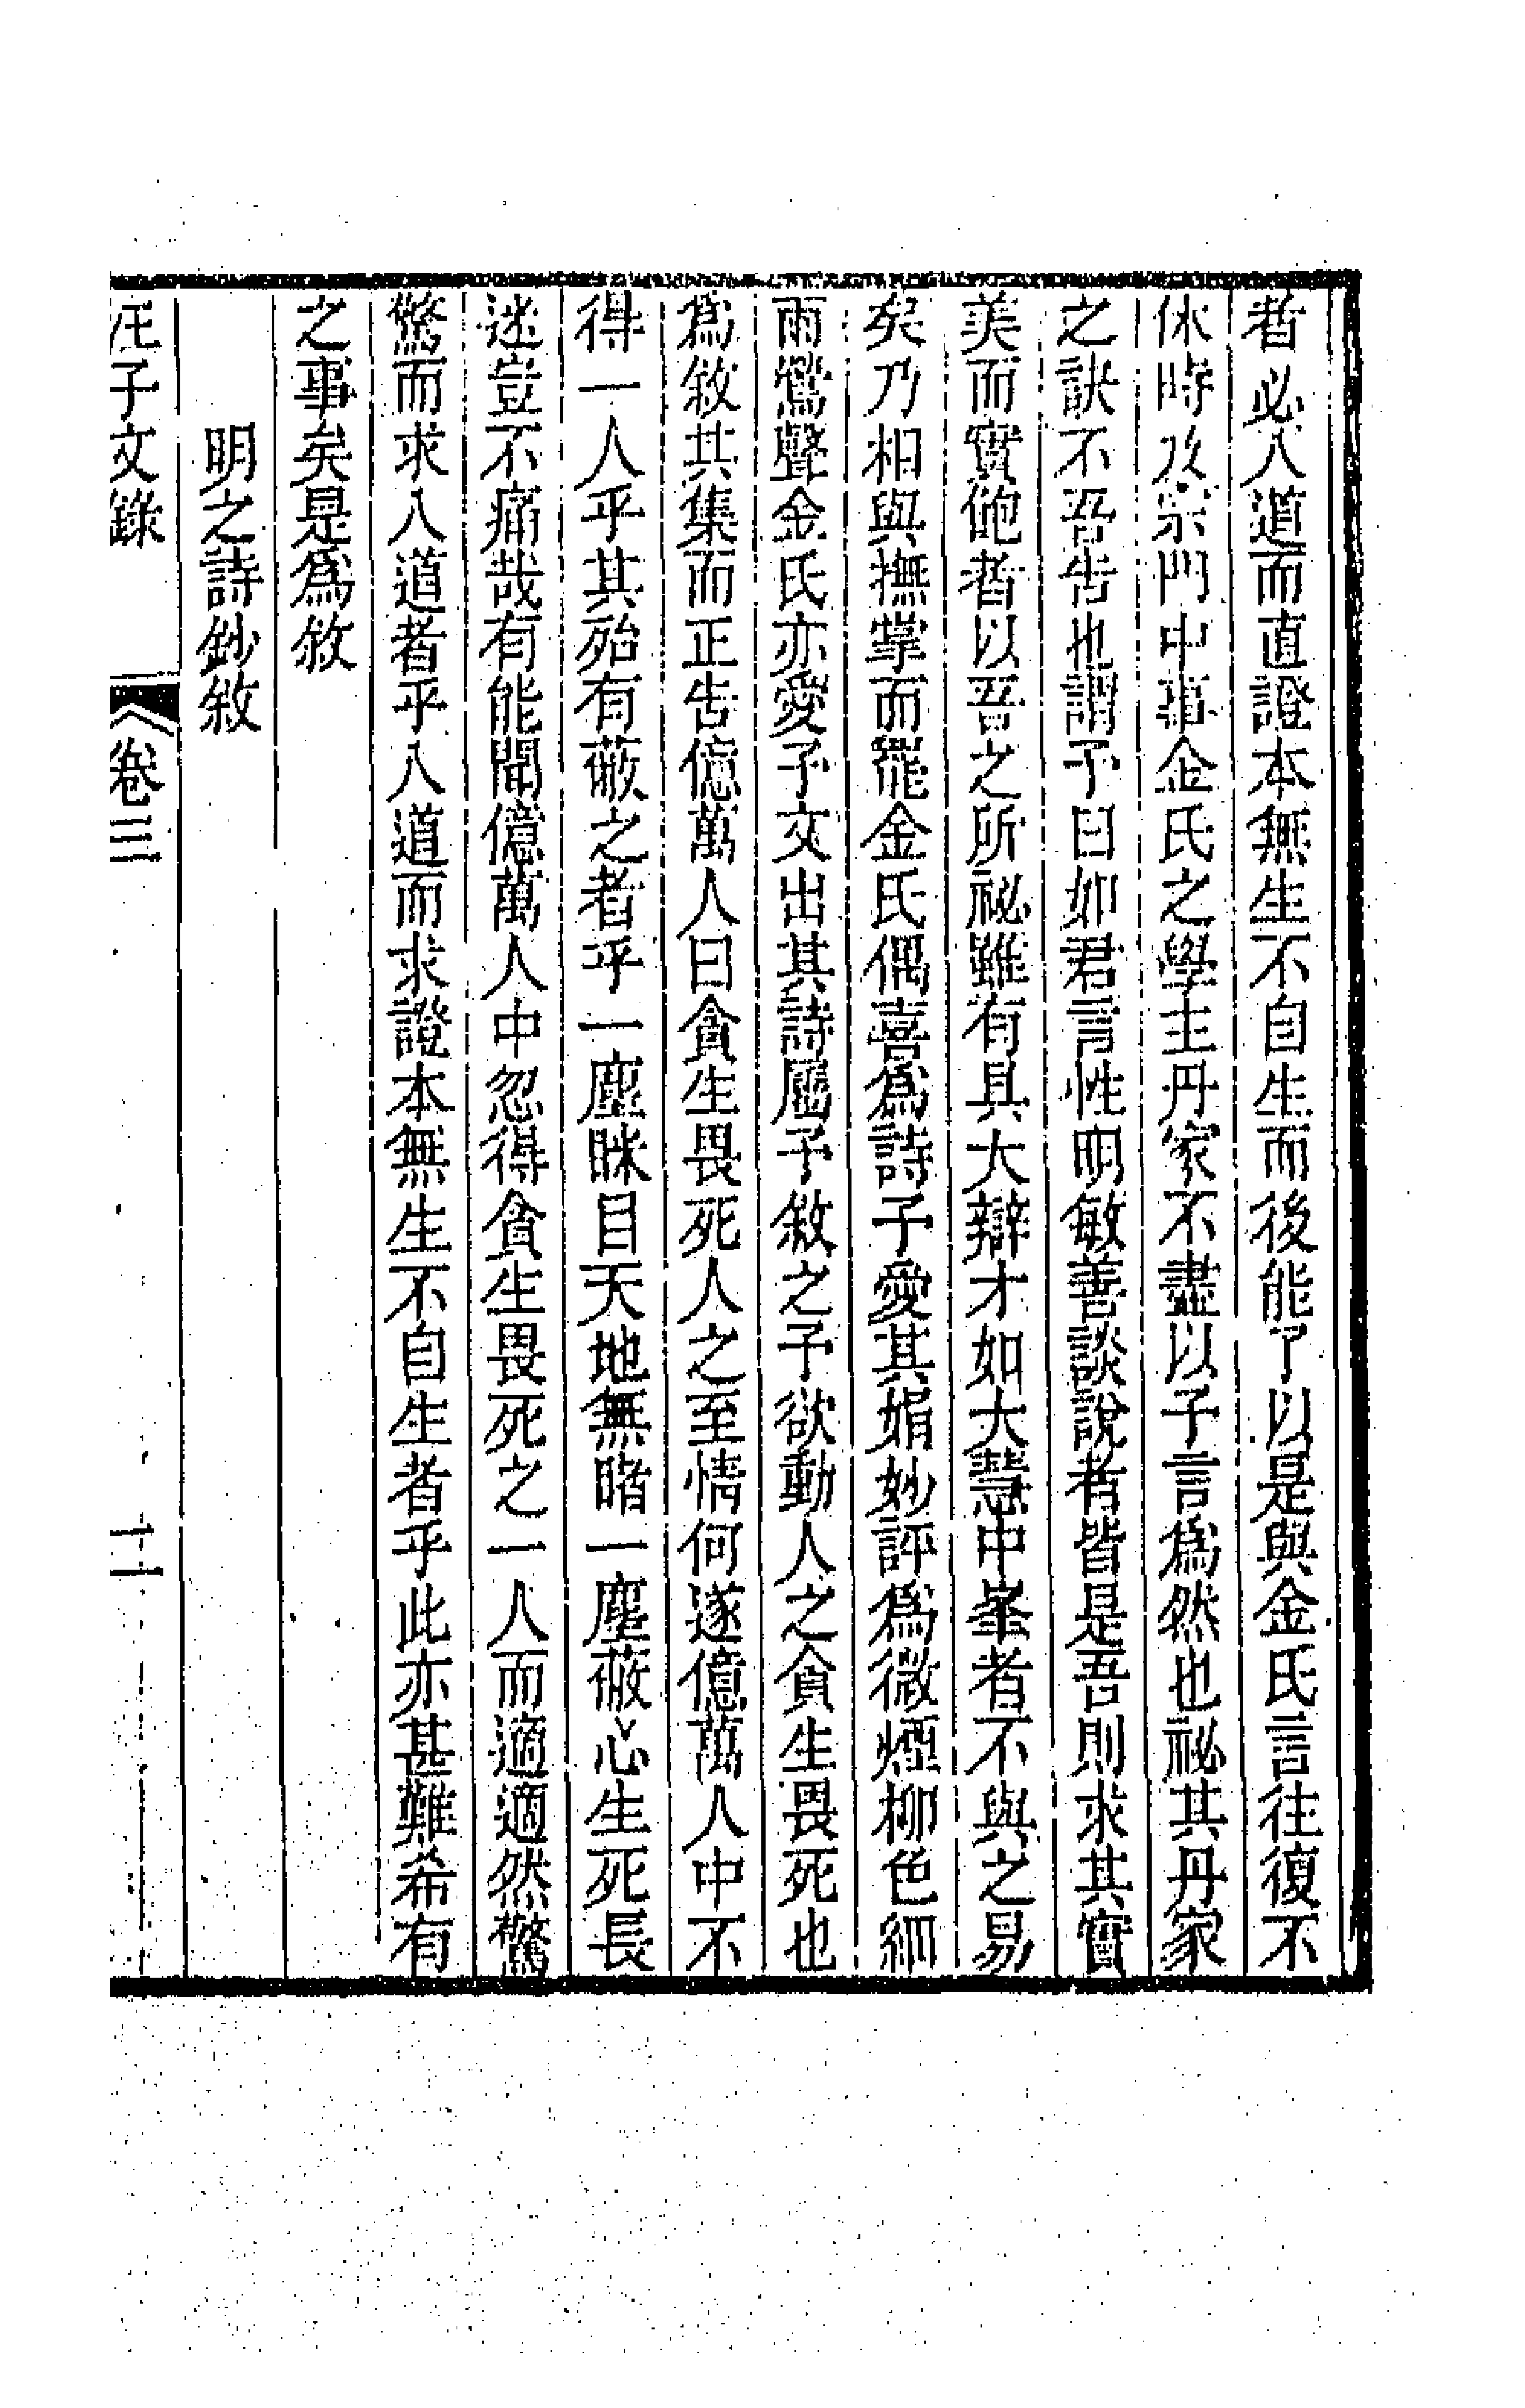 者必入道而直證本無生不自生而後能了以是與金氏言往復不
休時及宗門中事金氏之學主丹家不盡以予言爲然也祕其丹家
之訣不吾告也謂予曰如君言性明敏善談說者皆是吾則求其實
美而實飽者以吾之所祕雖有具大辯才如大慧中峯者不與之易
矣乃相與撫掌而罷金氏偶喜爲詩予愛其娟妙評爲微煙柳色細
雨鶯聲金氏亦愛予文出其詩屬予敘之予欲動人之貪生畏死也
爲敘其集而正告億萬人曰貪生畏死人之至情何遂億萬人中不
得一人乎其殆有蔽之者乎一塵眯目天地無睹一塵蔽心生死長
迷豈不痛哉有能聞億萬人中忽得貪生畏死之一人而適適然驚
驚而求入道者乎入道而求證本無生不自生者乎此亦甚難希有
之事矣是爲敘
明之詩鈔敘
汪子文錄
卷三
十一